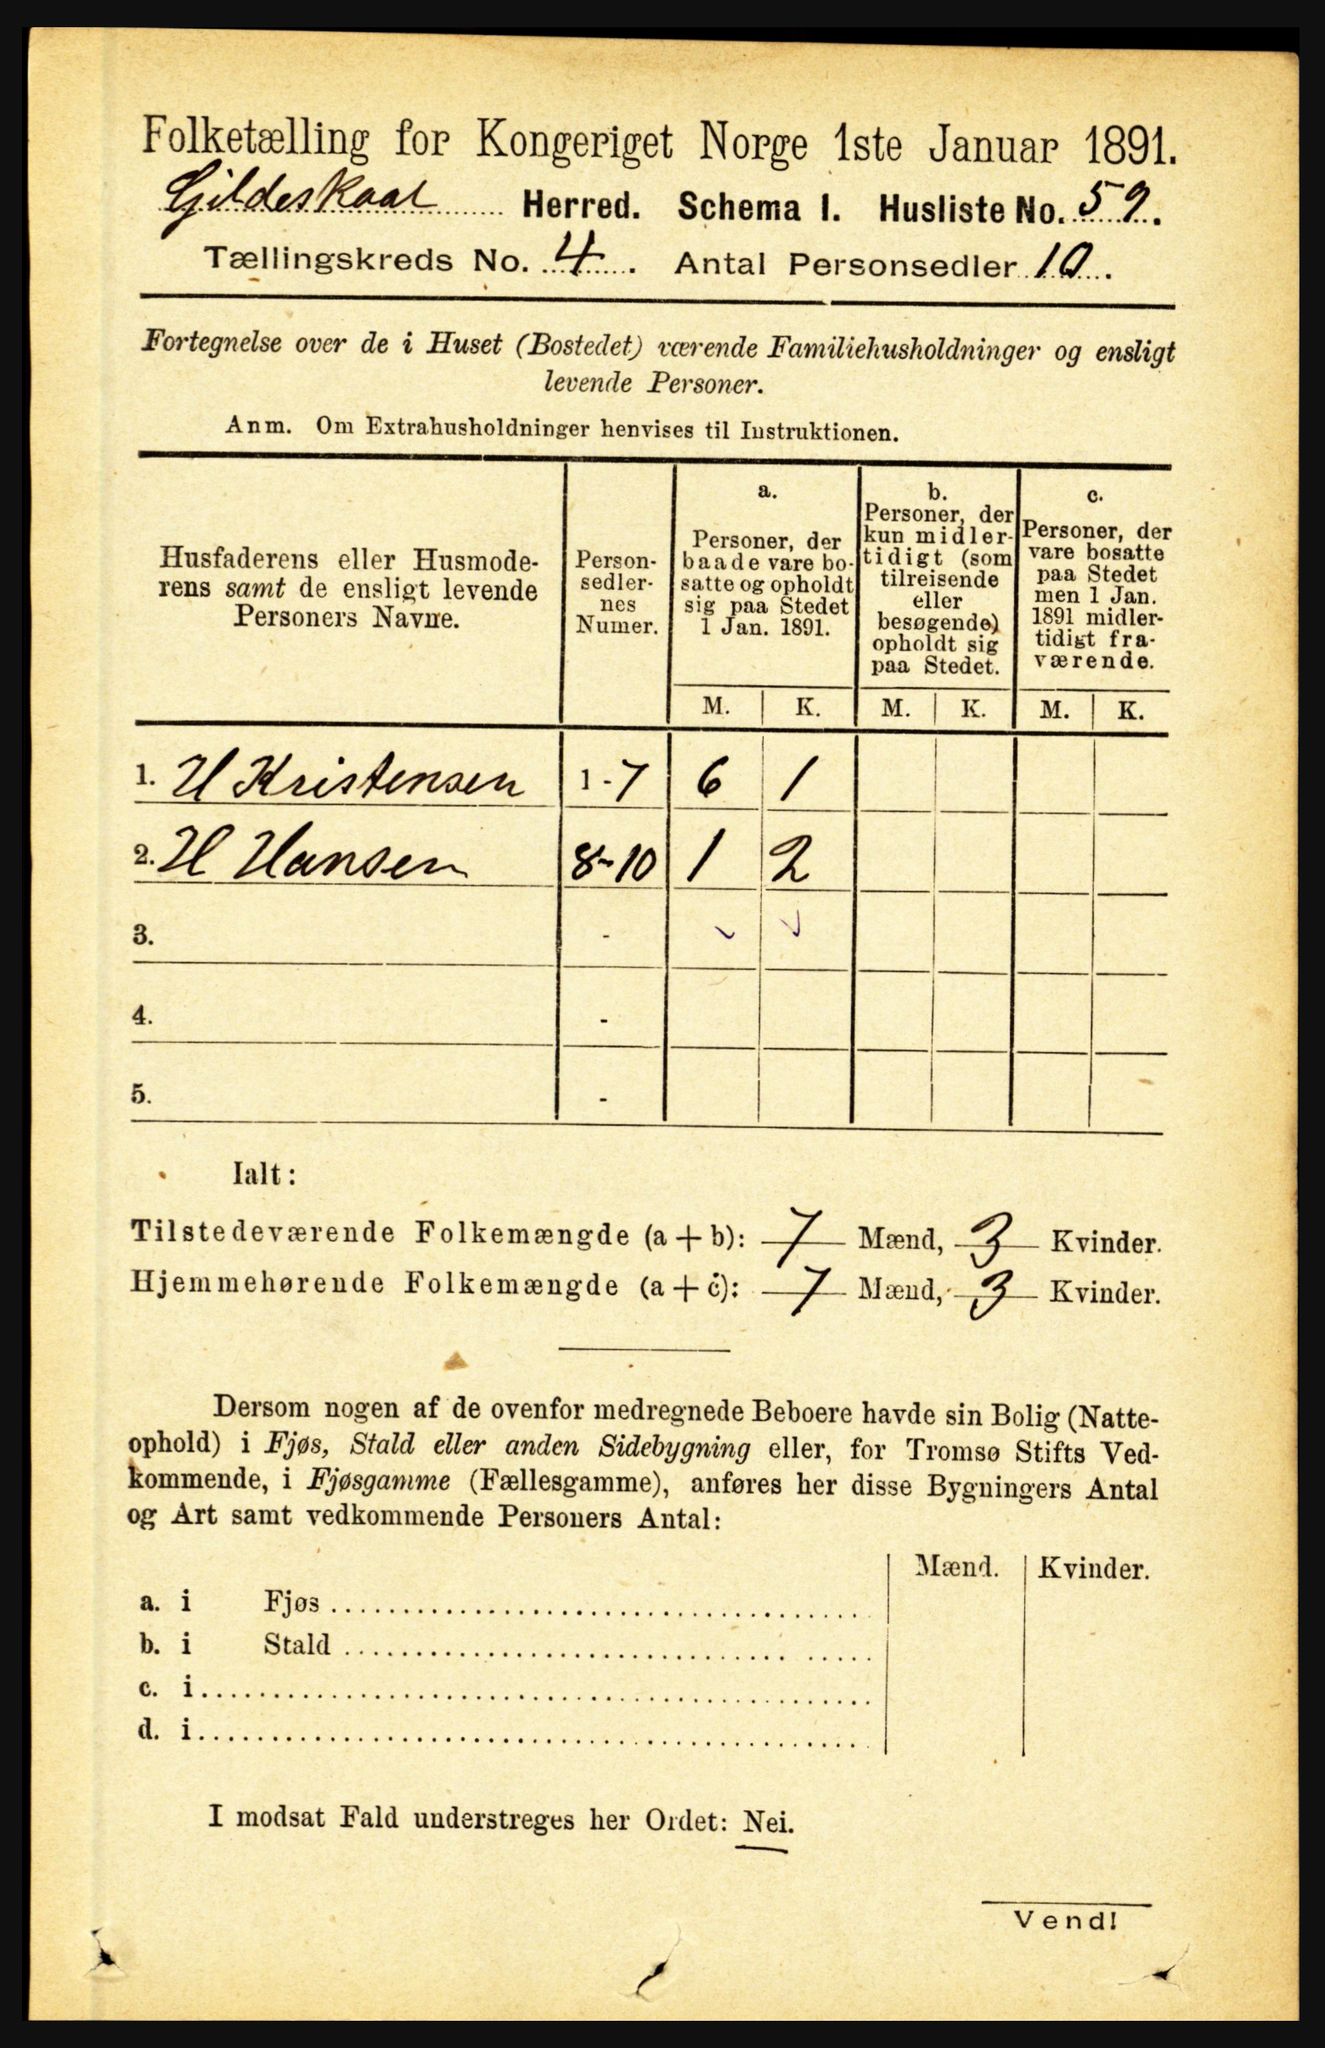 Folketælling for Kongeriget Norge 1ste Januar 1891.
Gildeskaal Herred. Schema I. Husliste No. 59.
Tællingskreds No. 4. Antal Personsedler 10.
Fortegnelse over de i Huset (Bostedet) værende Familiehusholdninger og ensligt
levende Personer.
Anm. Om Extrahusholdninger henvises til Instruktionen.
Husfaderens eller Husmode-
rens samt de ensligt levende
Personers Navne.
Person-
sedler-
nes
Numer.
a.
Personer, der
baade vare bo-
satte og opholdt
sig paa Stedet
1 Jan. 1891.
b.
Personer, der
kun midler-
tidigt (som
tilreisende
eller
besøgende)
opholdt sig
paa Stedet.
c.
Personer, der
vare bosatte
paa Stedet
men 1 Jan.
1891 midler-
tidigt fra-
værende.
M. K. M. K. M. K.
1. H Kristensen 1-7 6 1
2. H Hansen 8-10 1 2
3. -
4. -
5. -
Ialt:
Tilstedeværende Folkemængde (a + b): 7 Mænd, 3 Kvinder.
Hjemmehørende Folkemængde (a + c): 7 Mænd, 3 Kvinder.
Dersom nogen af de ovenfor medregnede Beboere havde sin Bolig (Natte-
ophold) i Fjøs, Stald eller anden Sidebygning eller, for Tromsø Stifts Ved-
kommende, i Fjøsgamme (Fællesgamme), anføres her disse Bygningers Antal
og Art samt vedkommende Personers Antal:
Mænd. Kvinder.
a. i Fjøs
b. i Stald
c. i
d. i
I modsat Fald understreges her Ordet: Nei.
Vend!